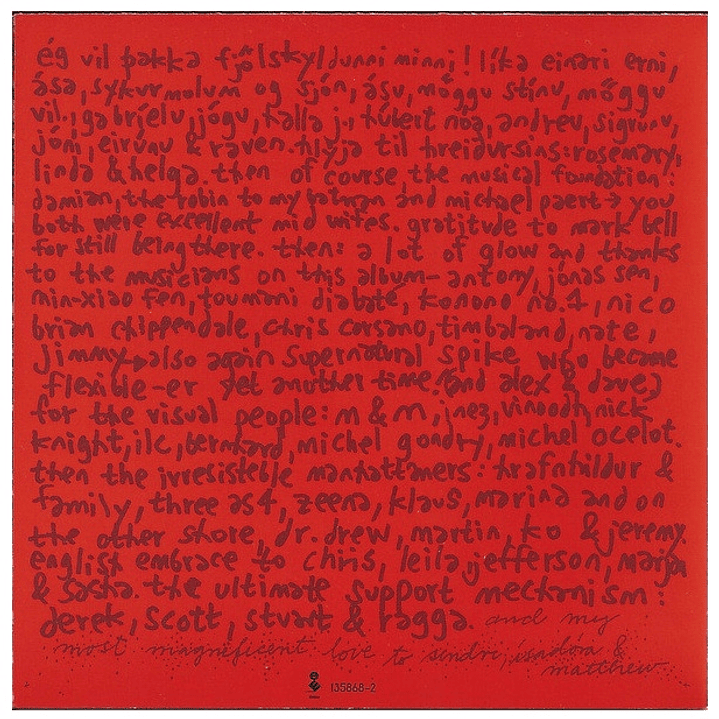 ég vil þakka fjölskyldunni minni! líka einari erni,
ásu, sykurmolum og sjón, ásu, möggu stínu, möggu
vil., gabríelu, jógu, halla j., húbert nóa, andreu, sigrúnu,
jóni, eirúnu & raven. hlýja til hreiðursins: rosemary,
linda & helga. then of course the musical foundation:
damian, the robin to my batman and michael paert → you
both were excellent mid wifes. gratitude to mark bell
for still being there. then: a lot of glow and thanks
to the musicians on this album – antony, jónas sen,
min-xiao fen, toumani diabaté, konono no.1, nico
brian chippendale, chris corsano, timbaland, nate,
jimmy → also again supernatural spike who became
flexible-er yet another time (and alex & dave)
for the visual people: m & m, inez, vinoodh, nick
knight, ilc, bernhard, michel gondry, michel ocelot.
then the irresisteble manhattamers: hrafnhildur &
family, three as 4, zeena, klaus, marina and on
the other shore, dr. drew, martin, ko & jeremy.
english embrace to chris, leila, jefferson, marja
& sasha. the ultimate support mechanism:
derek, scott, stuart & ragga. and my
most magneficent love to sindri, ísadóra &
matthew
135868-2